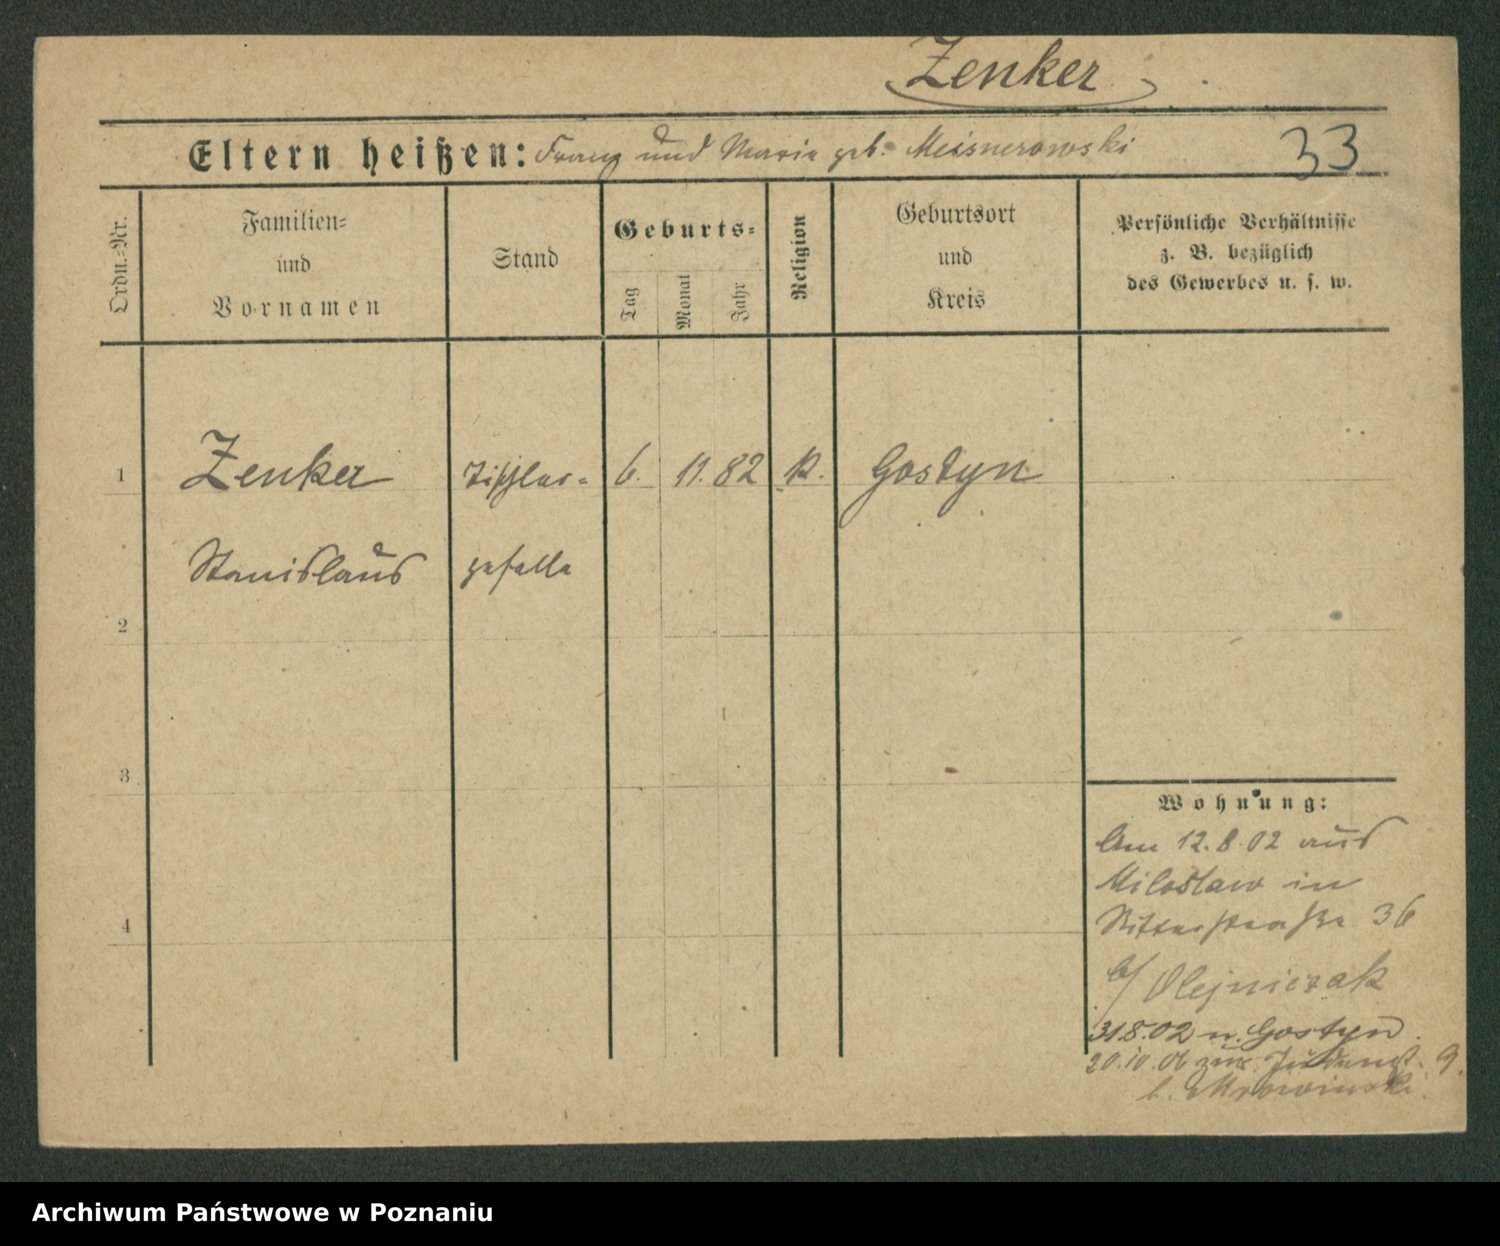 Zenker
Eltern heißen: Franz und Maria geb. Meisnerowski 33
Ordn.=Nr.
Familien=
und
Vornamen
Stand
Geburts=
Tag
Monat
Jahr
Religion
Geburtsort
und
Kreis
Persönliche Verhältnisse
z. B. bezüglich
des Gewerbes u. s. w.
1 Zenker Tischler= 6. 11. 82 K. Gostyn
Stanislaus geselle
2
3
4
Wohnung:
Am 12.8.02 aus
Miloslaw in
Ritterstraße 36
b/ Olejniczak
31.8.02 n. Gostyn.
20.10.06 9.
b. Mrowinski.
Archiwum Państwowe w Poznaniu